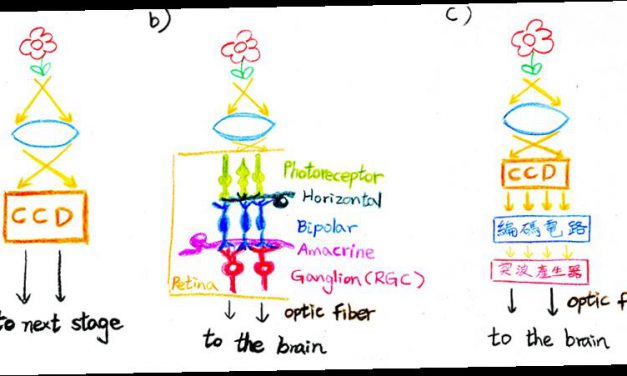 b)
c)
CCD
to next stage
Photoreceptor
Horizontal
Bipolar
Amacrine
Ganglion (RGC)
Retina
optic fiber
to the brain
CCD
編碼電路
突波產生器
optic f
to the brain